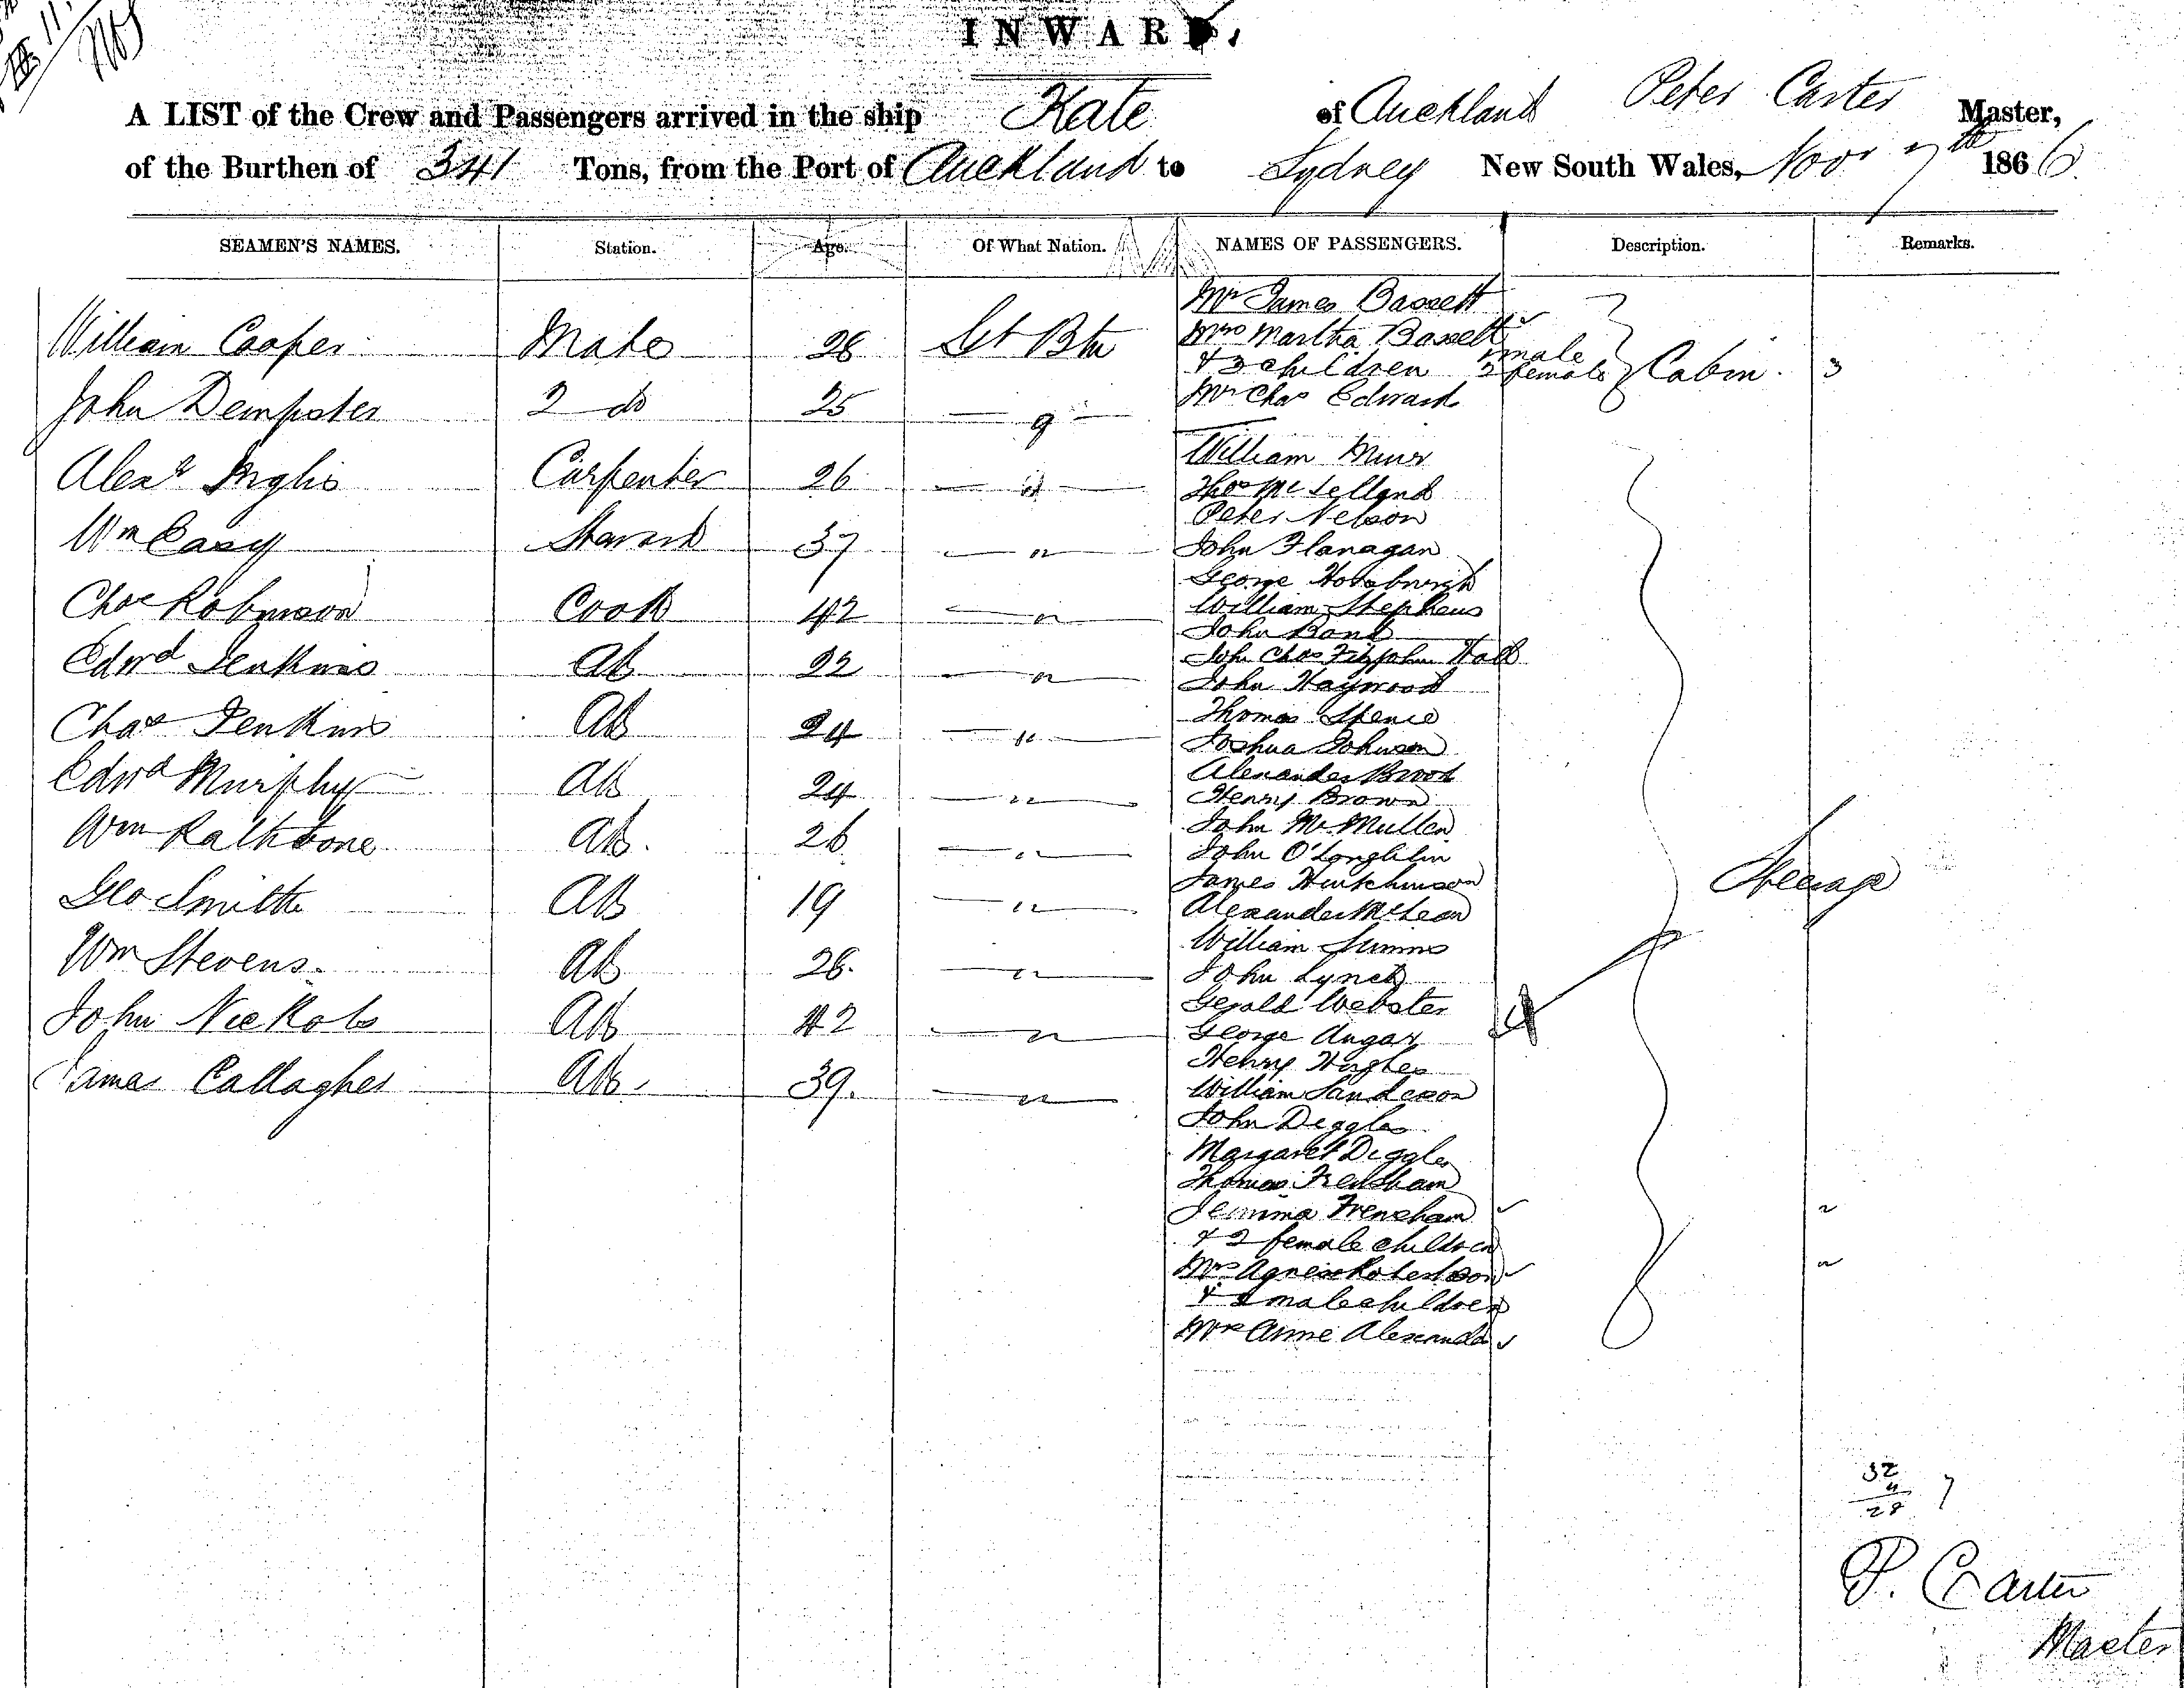 INWARD.
A LIST of the Crew and Passengers arrived in the ship Kate of Auckland Peter Carter Master,
of the Burthen of 341 Tons, from the Port of Auckland to Sydney New South Wales, Novr 7th 1866.
SEAMEN'S NAMES. Station. Age. Of What Nation. NAMES OF PASSENGERS. Description. Remarks.
William Cooper Mate 28 Gt Btn
John Dempster 2 do 25 "
Alexr Inglis Carpenter 26 "
Wm Casy Steward 37 "
Chas Robinson Cook 42 "
Edwd Jenkins AB 22 "
Chas Jenkins AB 24 "
Edwd Murphy AB 24 "
Wm Rathbone AB. 26 "
Geo Smith AB 19 "
Wm Stevens. AB 26. "
John Nickols AB 42 "
James Callagher AB. 39. "
Mr James Bassett
Mrs Martha Bassett
& 3 children 1 male
2 female Cabin. 3
Mr Chas Edward
William Muir
Thos McLelland
Peter Nelson
John Flanagan
George Horsburgh
William Stephens
John Bond
John Chas Fitzjohn Hall
John Haywood
Thomas Spence
Joshua Johnson
Alexander Brook
Henry Brown
John McMullen
John O'Longhlin
James Hutchinson
Steerage
Alexander McLean
William Simms
John Lynch
Gerald Webster
George Angar
Henry Hughes
William Sanderson
John Deggles
Margaret Deggles
Thomas Frensham
Jemima Frensham
& 2 female children
Mrs Agnes Robertson
& 2 male children
Mrs Anne Alexander
32
4
28 7
P. Carter
Master